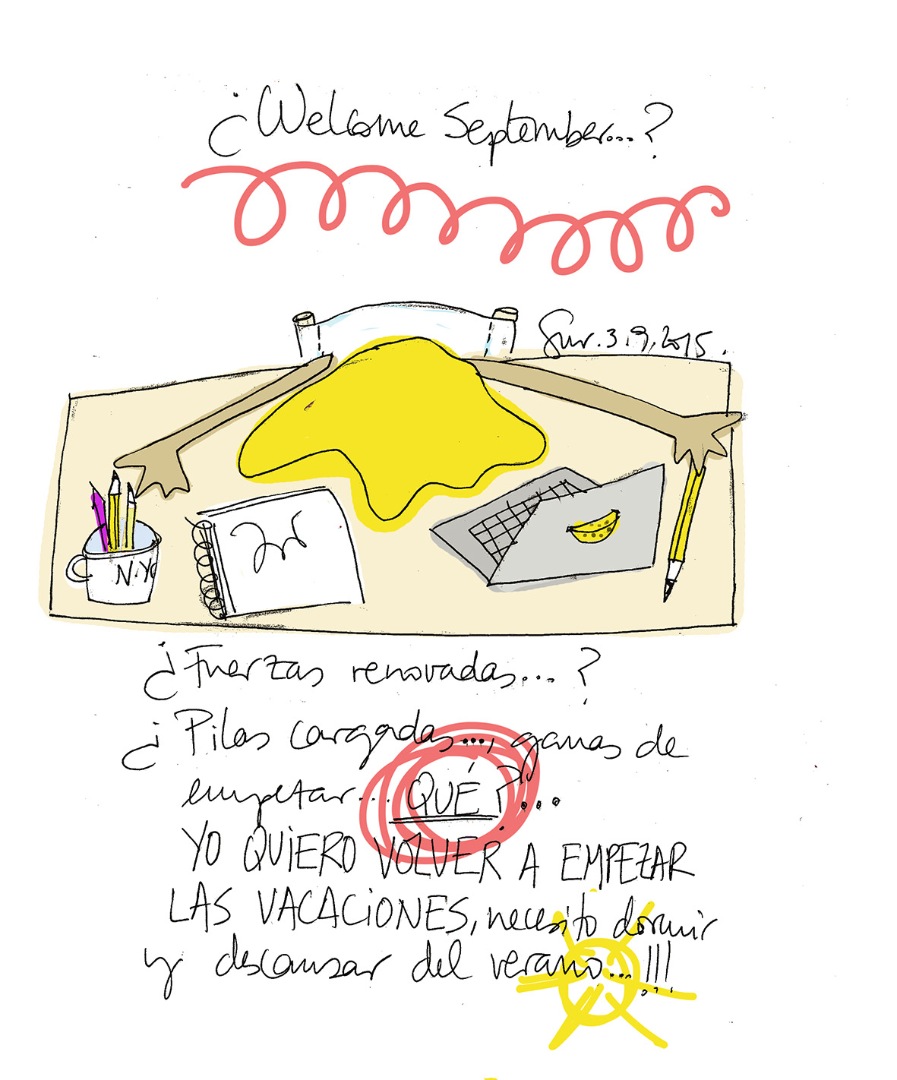 ¿Welcome September...?
3.9.2015.
N.Y
¿Fuerzas renovadas...?
¿Pilas cargadas..., ganas de
empezar... QUÉ?...
YO QUIERO VOLVER A EMPEZAR
LAS VACACIONES, necesito dormir
y descansar del verano...!!!